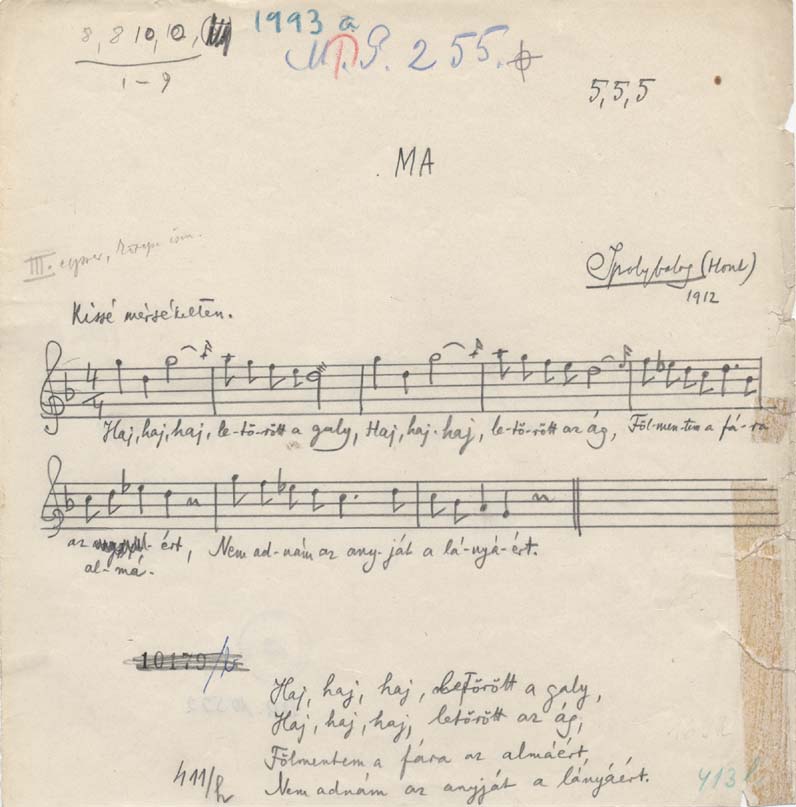 8, 8 10, 10,
1993 a
M.P.G. 255.
1-9
5,5,5
MA
III.
Ipolybalog (Hont)
1912
Kissé mérsékelten.
4/4
Haj, haj, haj, le-tö-rött a galy, Haj, haj, haj, le-tö-rött az ág, Föl-men-tem a fá-ra
az -ért, Nem ad-nám az any-ját a lá-nyá-ért.
al-má-
10179/b
Haj, haj, haj, letörött a galy,
Haj, haj, haj, letörött az ág,
Fölmentem a fára az almáért,
411/h Nem adnám az anyját a lányáért.
413 h